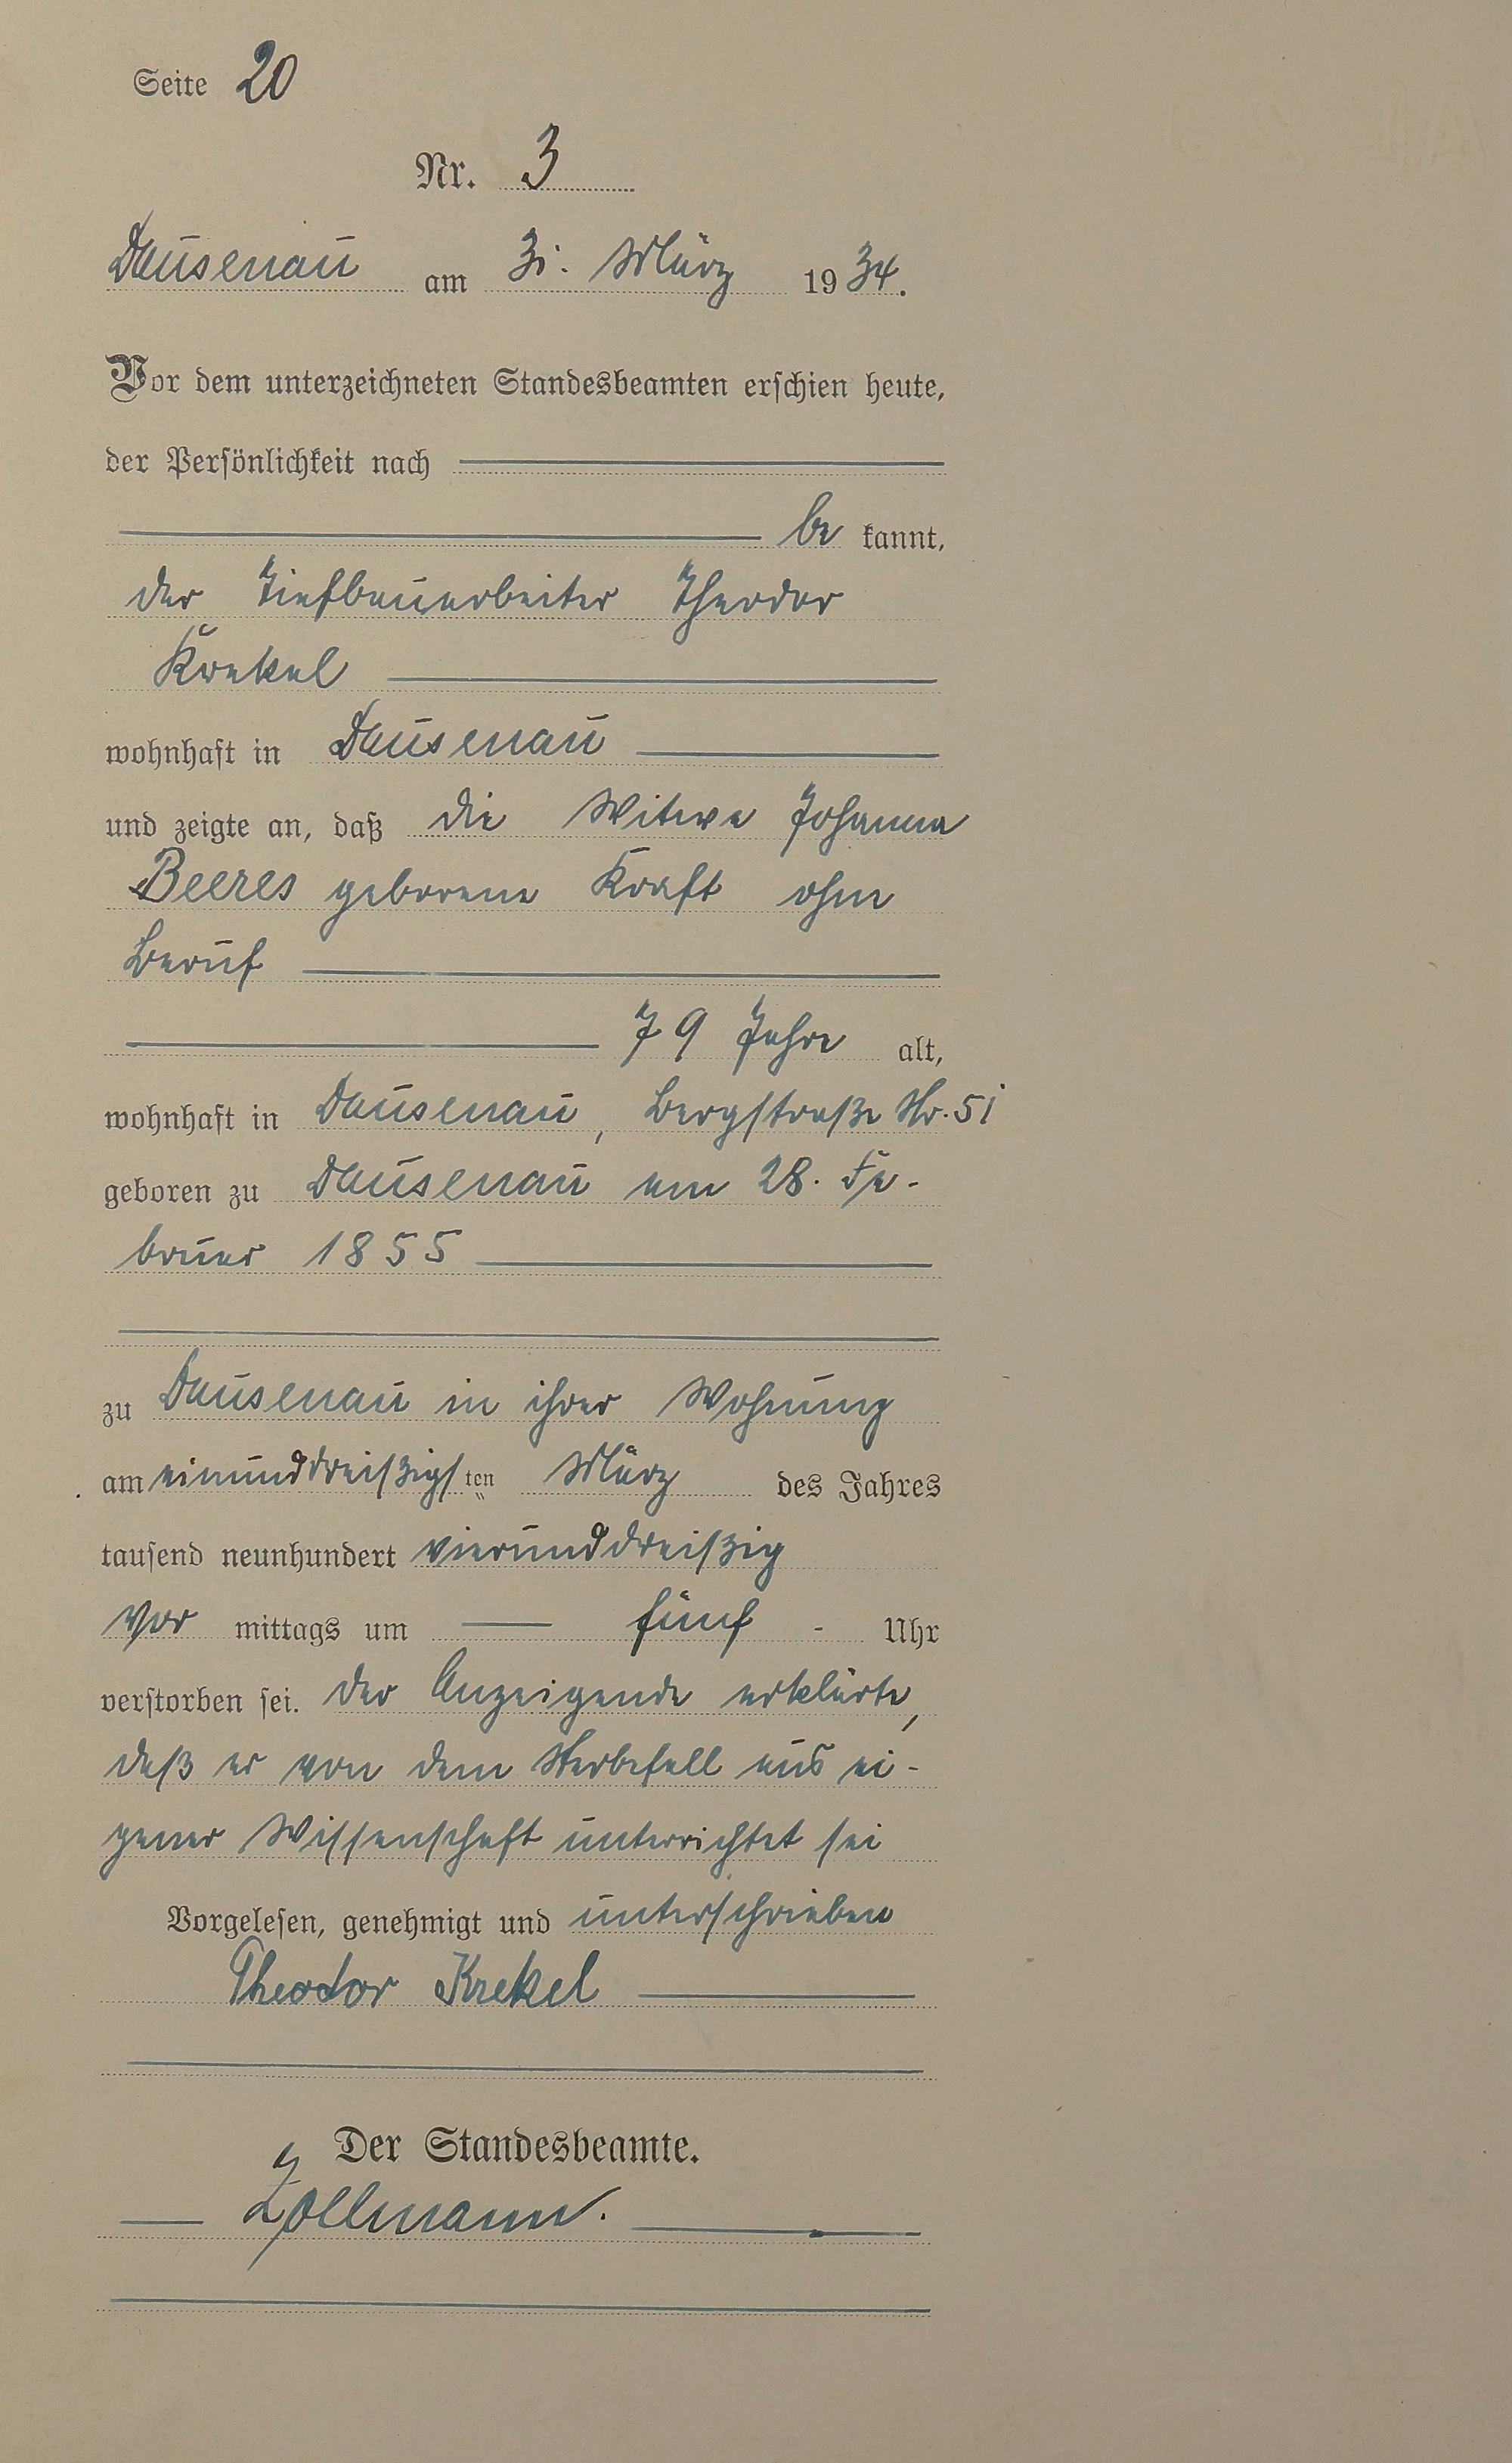 Seite 20
Nr. 3
Dausenau am 31. März 1934.
Vor dem unterzeichneten Standesbeamten erschien heute,
der Persönlichkeit nach
be kannt,
der Tiefbauarbeiter Theodor
Krekel
wohnhaft in Dausenau
und zeigte an, daß die Witwe Johanna
Beeres geborene Kraft ohne
Beruf
79 Jahre alt,
wohnhaft in Dausenau, Bergstraße Nr. 51
geboren zu Dausenau am 28. Fe-
bruar 1855
zu Dausenau in ihrer Wohnung
am einunddreißigsten März des Jahres
tausend neunhundert vierunddreißig
Vor mittags um fünf Uhr
verstorben sei. Der Anzeigende erklärte,
daß er von dem Sterbefall aus ei-
gener Wissenschaft unterrichtet sei
Vorgelesen, genehmigt und unterschrieben
Theodor Krekel
Der Standesbeamte.
Zollmann.